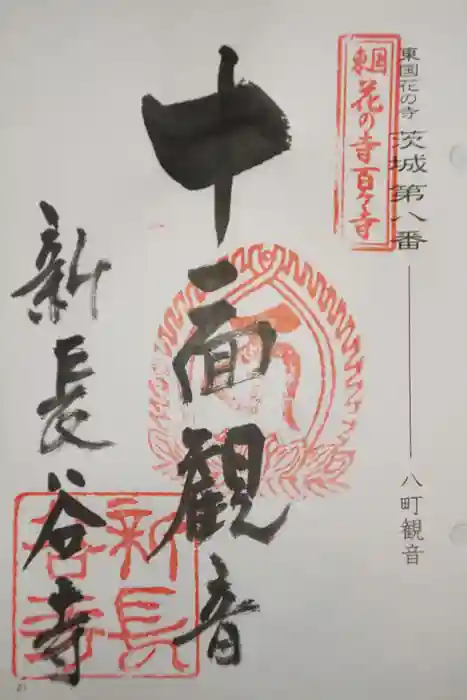 東国花の寺 茨城第八番 ― 八町観音
東国花の寺百ヶ寺
十一面観音
新長谷寺
新長谷寺